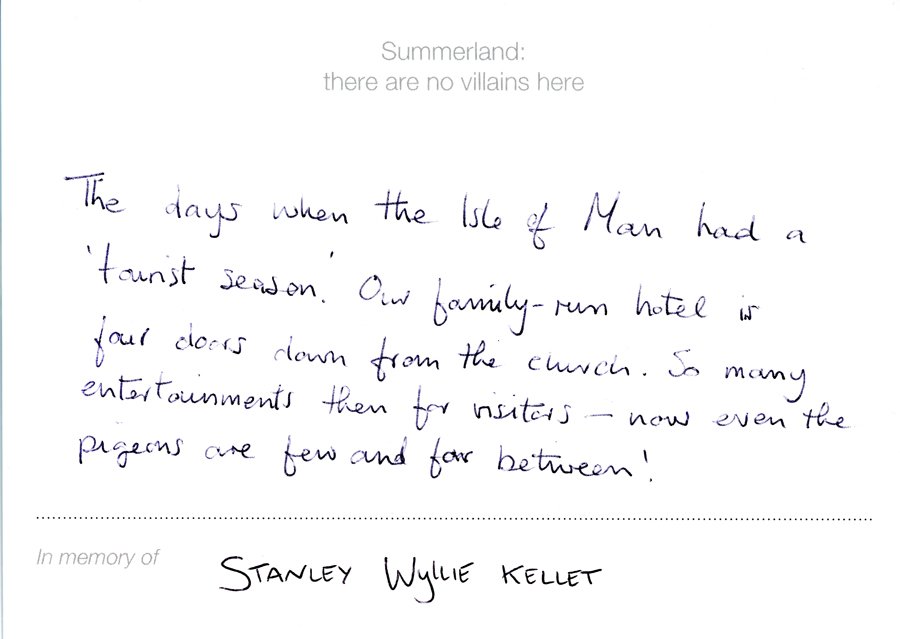 Summerland:
there are no villains here
The days when the Isle of Man had a
'tourist season'. Our family-run hotel is
four doors down from the church. So many
entertainments then for visitors – now even the
pigeons are few and far between!
In memory of STANLEY WYLLIE KELLET